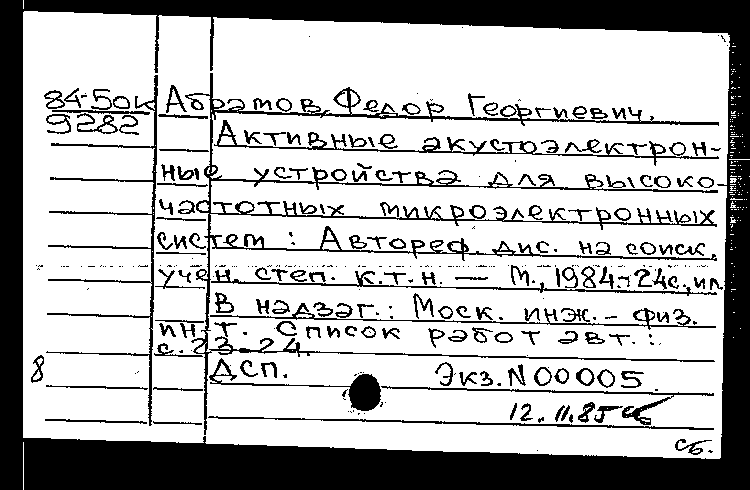 84-50к Абрамов, Федор Георгиевич.
9282 Активные акустоэлектрон-
ные устройства для высоко-
частотных микроэлектронных
систем : Автореф. дис. на соиск.
учен. степ. к.т.н. — М., 1984.-24с., ил.
В надзаг.: Моск. инж.- физ.
ин-т. Список работ авт.:
с. 23-24.
8 ДСП. Экз. N 00005.
12.11.85
сб.